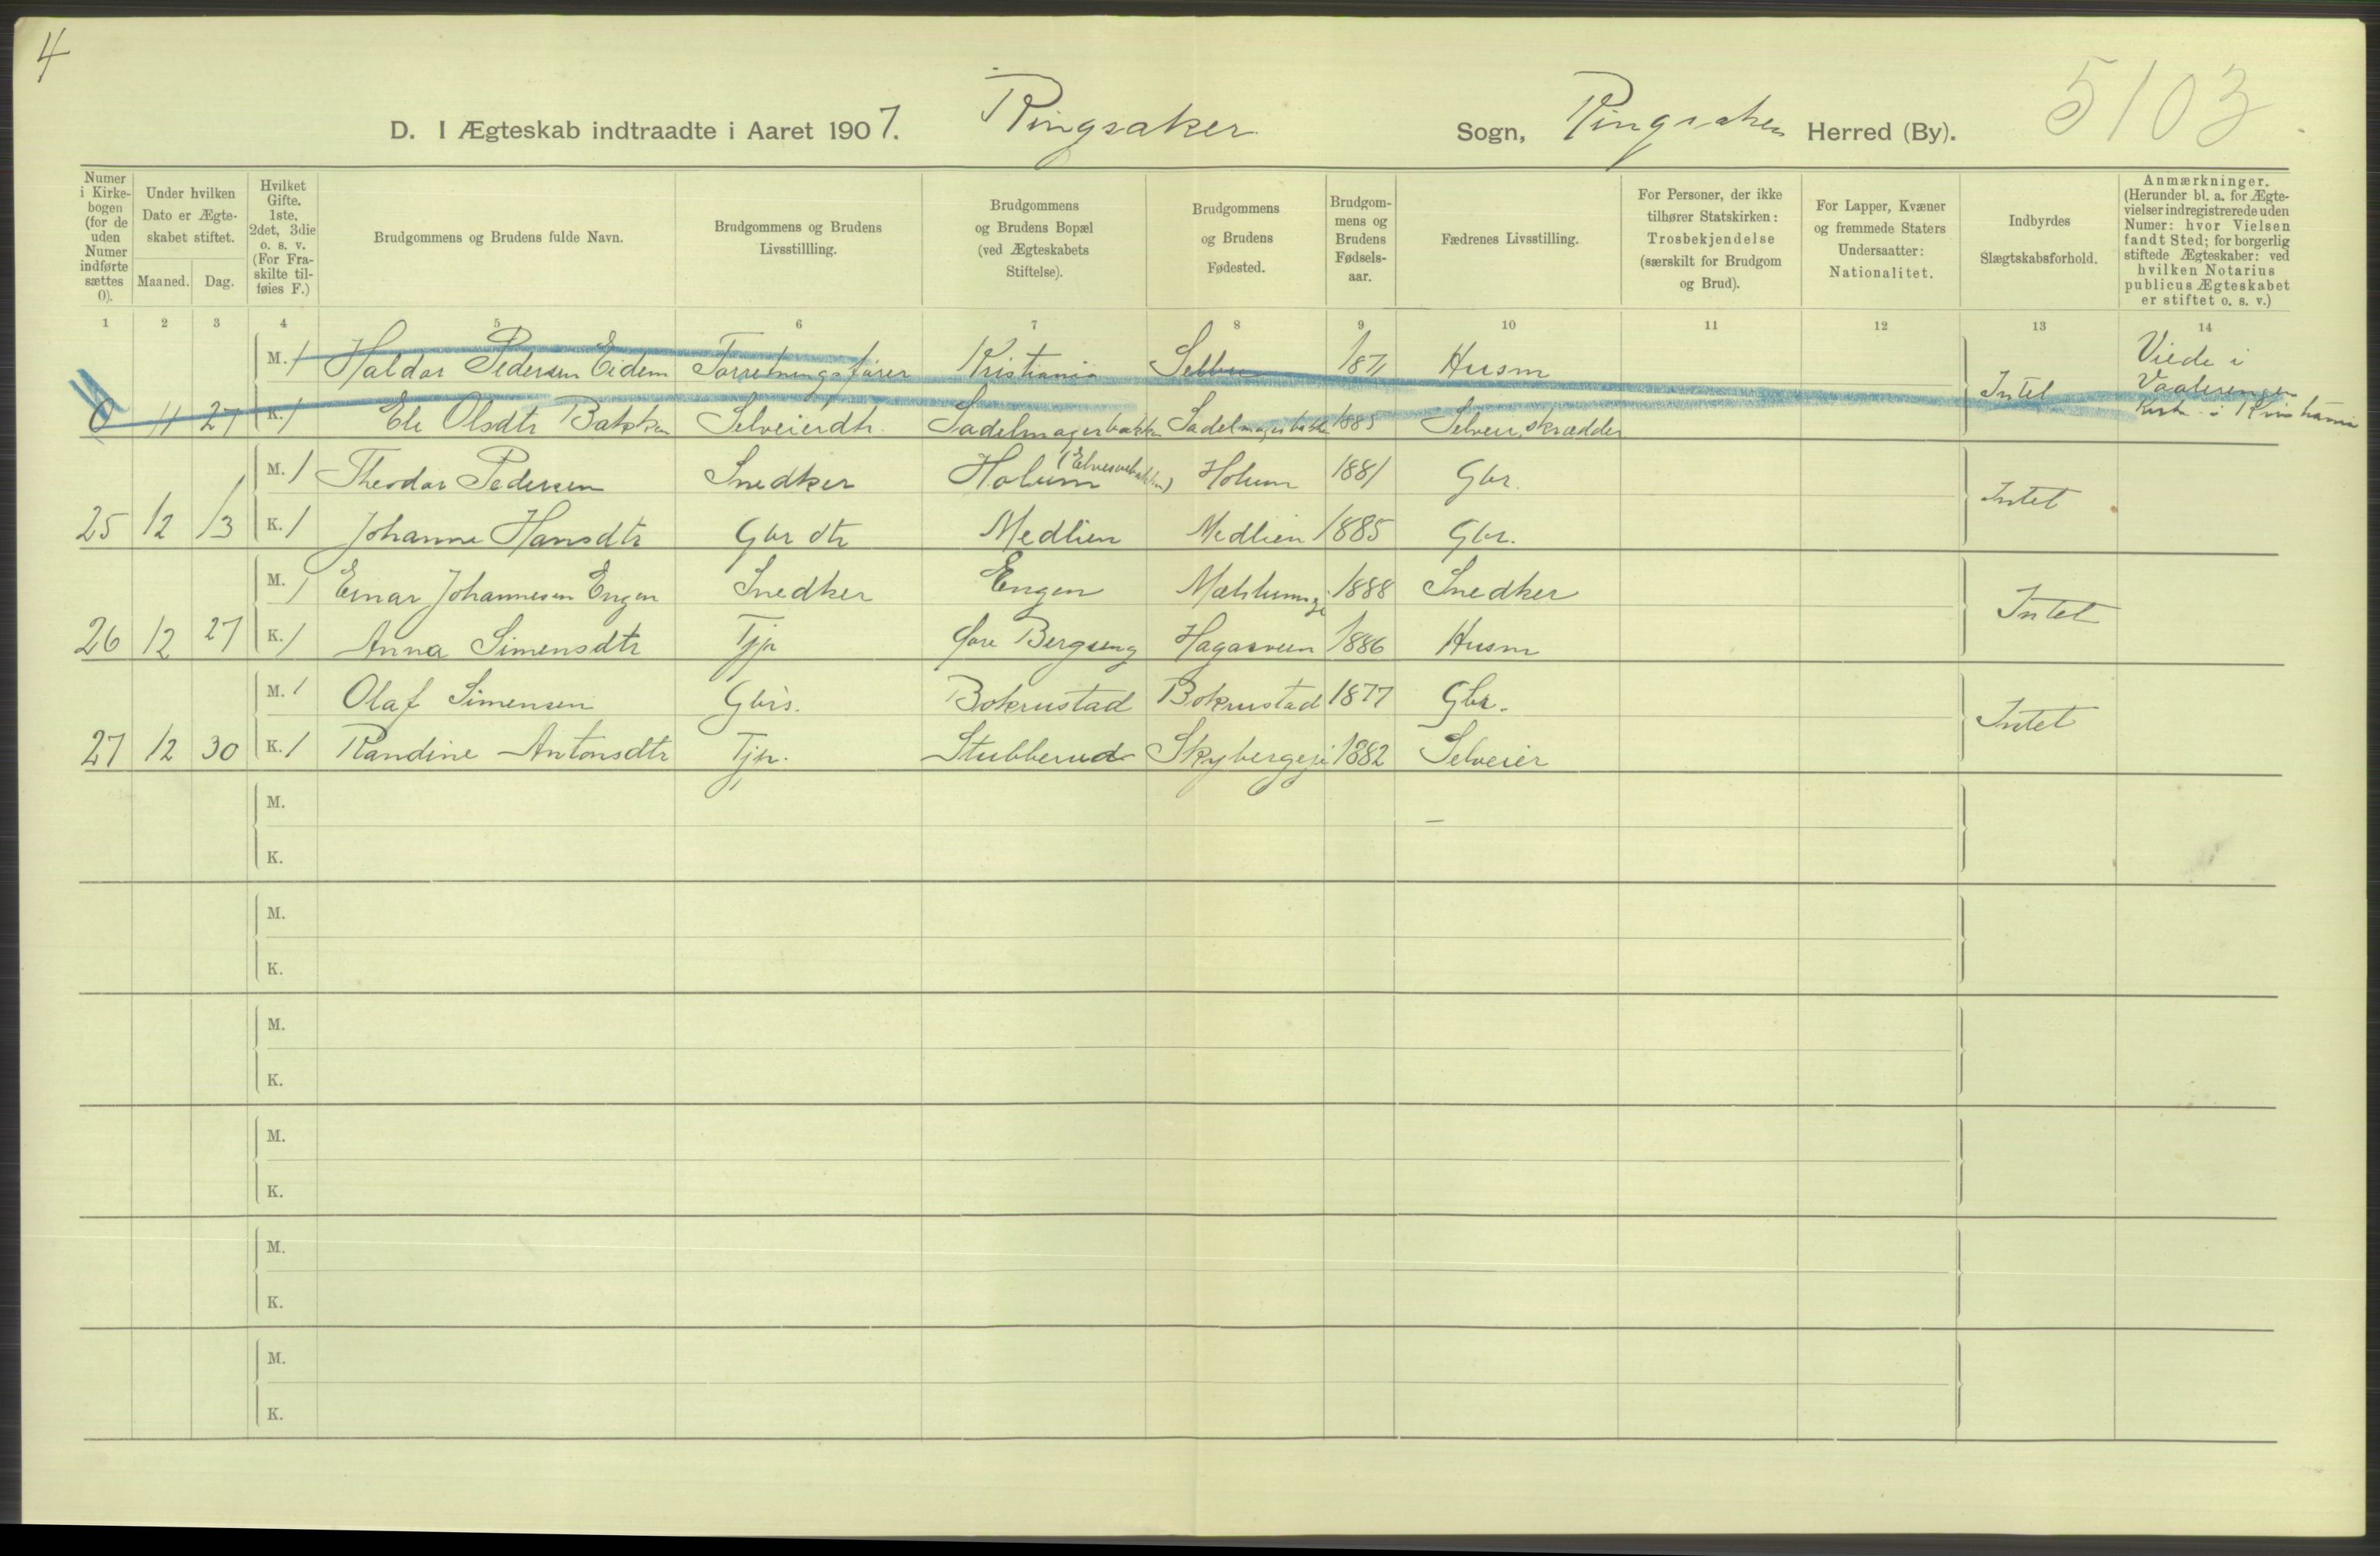 4
D. I Ægteskab indtraadte i Aaret 1907. Ringsaker Sogn, Ringsaker Herred (By). 5103
Numer i Kirkebogen (for de uden Numer indførte sættes 0).
Under hvilken Dato er Ægteskabet stiftet.
Maaned. Dag.
Hvilket Gifte. 1ste, 2det, 3die o. s. v. (For Fraskilte tilføies F.)
Brudgommens og Brudens fulde Navn.
Brudgommens og Brudens Livsstillling.
Brudgommens og Brudens Bopæl (ved Ægteskabets Stiftelse).
Brudgommens og Brudens Fødested.
Brudgommens og Brudens Fødselsaar.
Fædrenes Livsstilling.
For Personer, der ikke tilhører Statskirken: Trosbekjendelse (særskilt for Brudgom og Brud).
For Lapper, Kvæner og fremmede Staters Undersaatter: Nationalitet.
Indbyrdes Slægtskabsforhold.
Anmærkninger. (Herunder bl. a. for Ægtevielser indregistrerede uden Numer: hvor Vielsen fandt Sted; for borgerlig stiftede Ægteskaber: ved hvilken Notarius publicus Ægteskabet er stiftet o. s. v.)
1 2 3 4 5 6 7 8 9 10 11 12 13 14
M. 1 Haldor Pedersen Eidem Forretningsfører Kristiania Selbu 1871 Husm Intet Viede i Vaalerengen Kirk. i Kristiania
0 11 27 K. 1 Eli Olsdtr Bakken Selveierdtr. Sadelmagerbakken Sadelmagerbakk 1885 Selveier, skrædder
M. 1 Theodor Pedersen Snedker Holum Holum 1881 Gbr. Intet
25 12 13 K. 1 Johanne Hansdtr Gbr dtr Medlien Medlien 1885 Gbr.
M. 1 Einar Johannesen Engen Snedker Engen Mælumseje 1888 Snedker Intet
26 12 27 K. 1 Anna Simensdtr Tjp Øvre Bergseng Hagasveen 1886 Husm
M. 1 Olaf Simensen Gbrs. Bokrustad Bokrustad 1877 Gbr. Intet
27 12 30 K. 1 Randine Antonsdtr Tjp. Stubberud Skybergeje 1882 Selveier
M.
K.
M.
K.
M.
K.
M.
K.
M.
K.
M.
K.